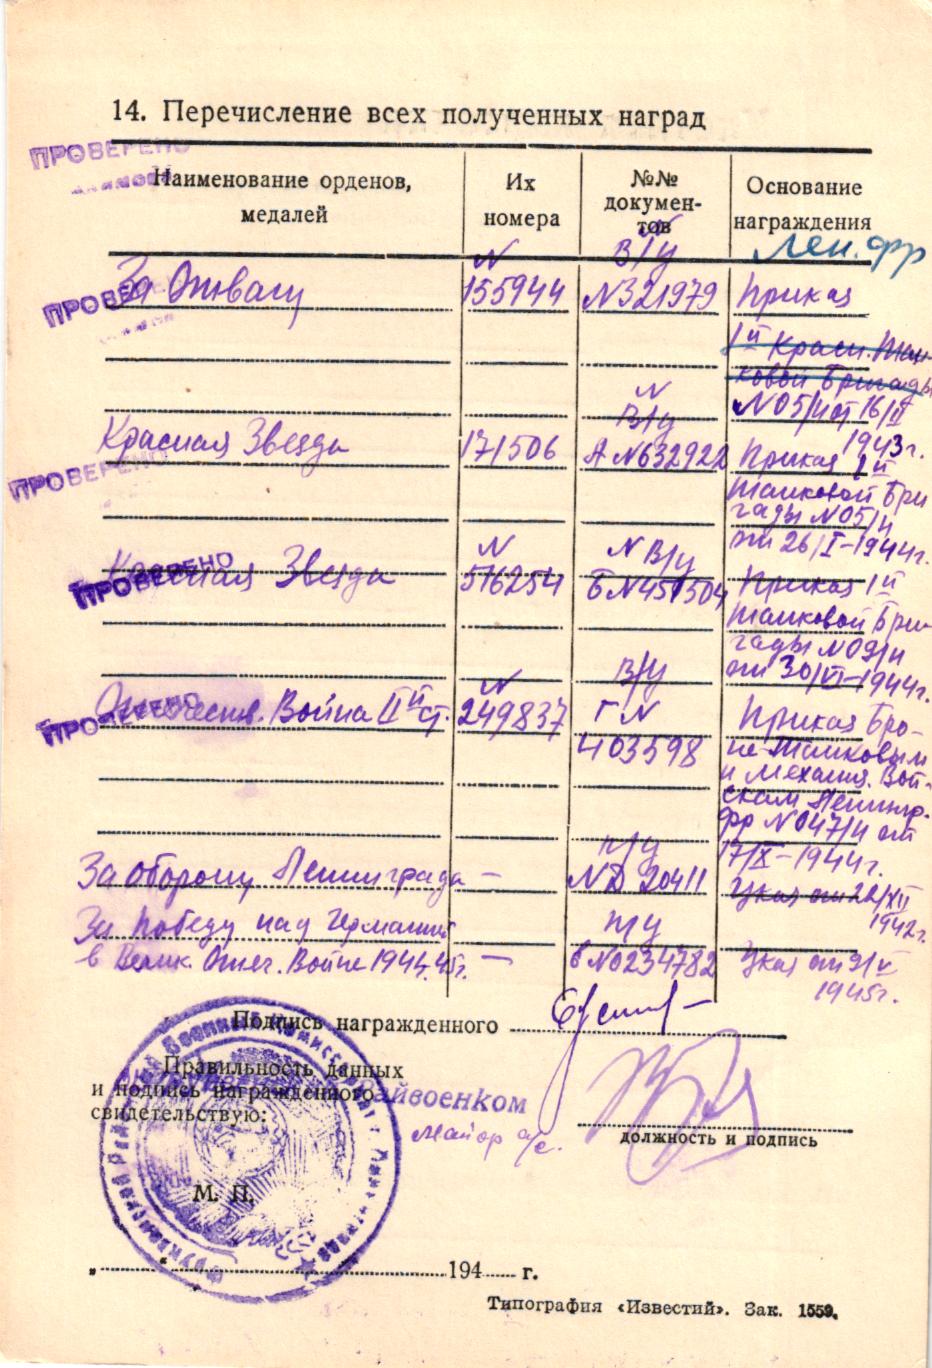 14. Перечисление всех полученных наград
ПРОВЕРЕНО
Наименование орденов, медалей
Их номера
№№ документов
Основание награждения
Лен. фр
ПРОВЕРЕНО
За Отвагу
N 155944
В/у N321979
Приказ
1й Красн. Тан-
ковой Бригады
N05/н от 16/II
1943г.
ПРОВЕРЕНО
Красная Звезда
171506
N В/у
А N632922
Приказ 1й
Танковой Бри
гады N05/н
от 26/I-1944г.
ПРОВЕРЕНО
Красная Звезда
N 516254
N В/у
Б N451504
Приказ 1й
Танковой Бри-
гады N09/н
от 30/VI-1944г.
ПРОВЕРЕНО
Отечеств. Война IIй ст.
N 249837
В/у
Г N
403598
Приказ Бро-
не-Танковым
и Механиз. Вой-
скам Ленингр.
фр N047/н от
17/X-1944г.
За оборону Ленинграда
-
п/у
NД 20411
Указ от 22/XII
1942г.
За Победу над Германией
в Велик. Отеч. Войне 1941-45г.
-
п/у
в N0234782
Указ от 9/V
1945г.
Подпись награжденного
Правильность данных
и подпись награжденного
свидетельствую:
Райвоенком
Майор а/с.
должность и подпись
М. П.
„ “ 194 г.
Типография «Известий». Зак. 1559.